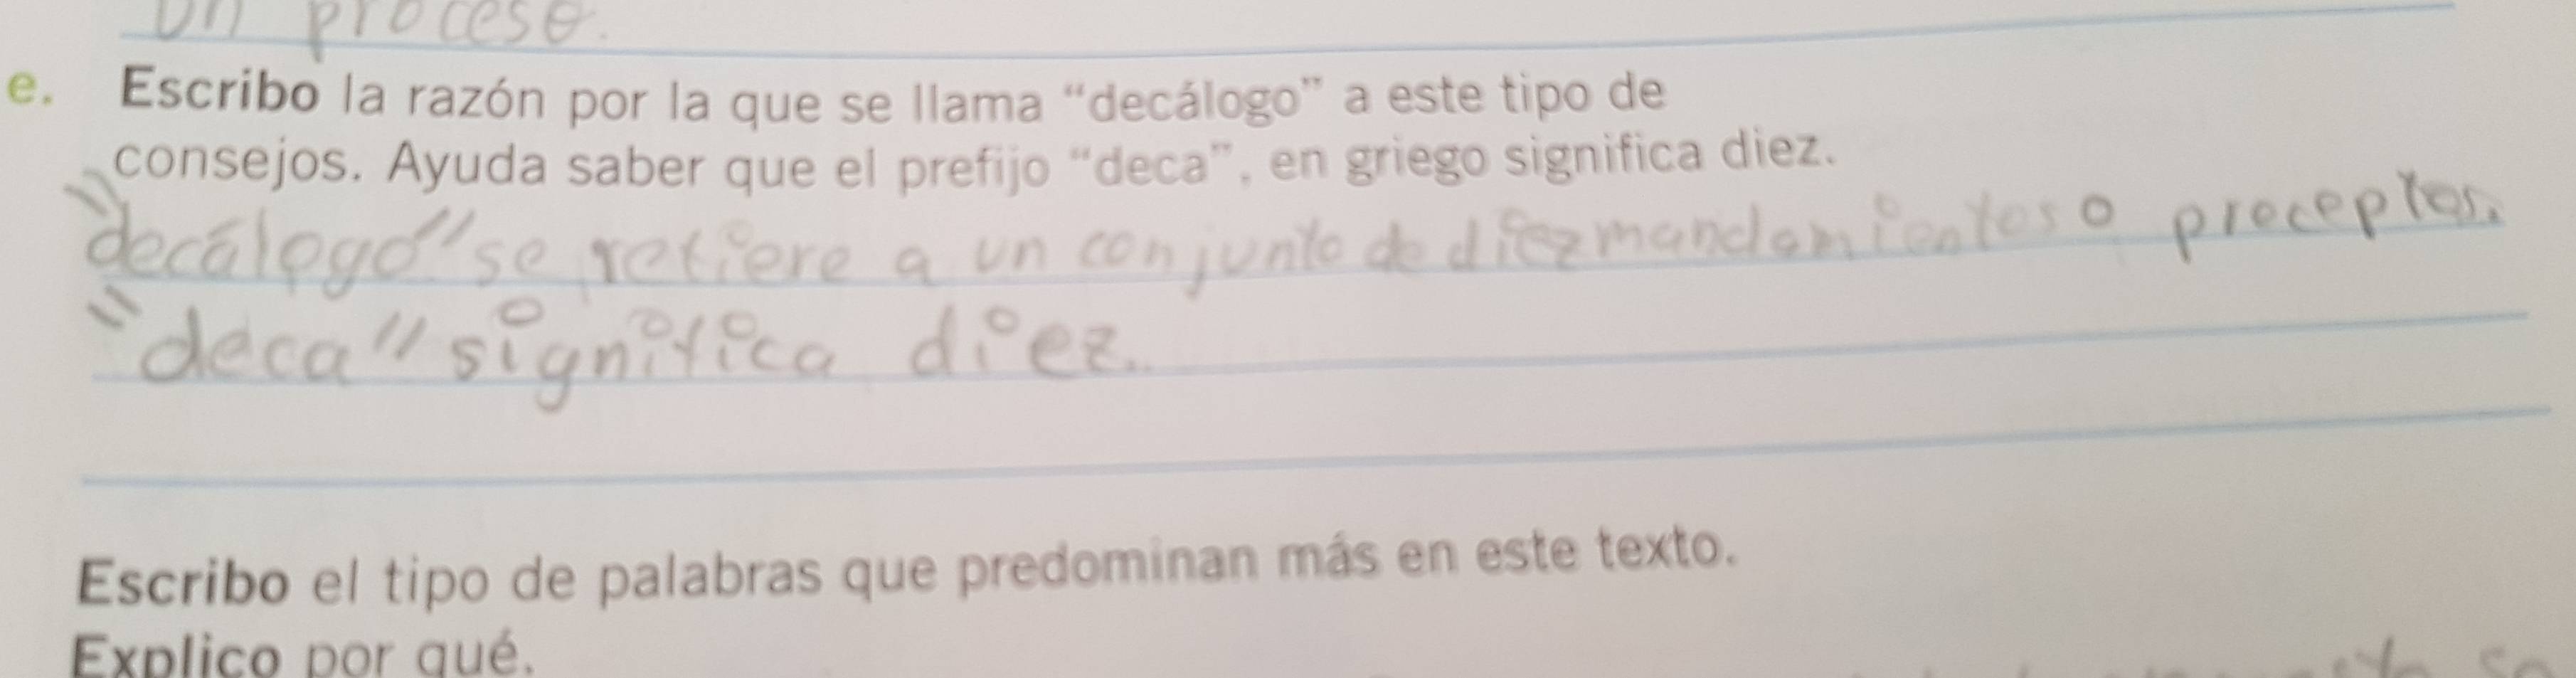 un proceso.
e. Escribo la razón por la que se llama "decálogo" a este tipo de
consejos. Ayuda saber que el prefijo "deca", en griego significa diez.
"decálogo" se refiere a un conjunto de diez mandamientos o preceptos.
"deca" significa diez.
Escribo el tipo de palabras que predominan más en este texto.
Explico por qué.